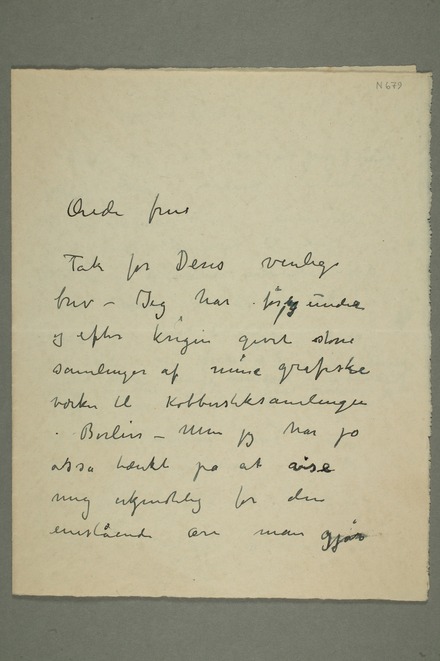 N 679
Ærede frue
Tak for Deres venlige
brev – Jeg har før og under
og efter krigen givet store
samlinger af mine grafiske
værker til Kobberstiksamlingen
i Berlin – Men jeg har jo
også tænkt på at vise
mig erkjentlig for den
enestående ære man gjør